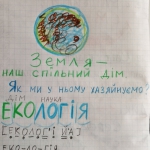 Земля —
наш спільний дім.
Як ми у ньому хазяйнуємо?
дім наука
ЕКОЛОГІЯ
ЕКО-ЛО-ГІЯ